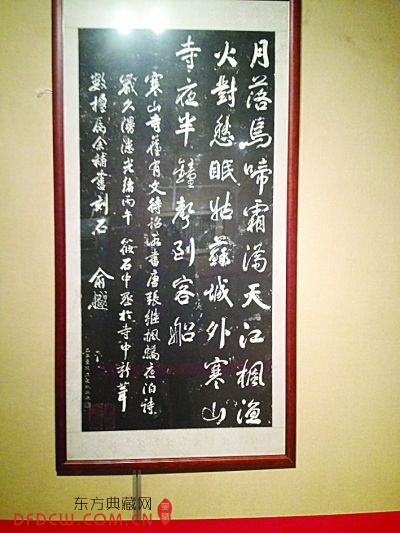 月落烏啼霜滿天江楓漁
火對愁眠姑蘇城外寒山
寺夜半鐘聲到客船
寒山寺舊有文待詔所書唐張繼楓橋夜泊詩
歲久漫漶光緒丙午筱石中丞於寺中新葺
數楹屬余補書刻石
俞樾
东方典藏网
DFDCW.COM.CN